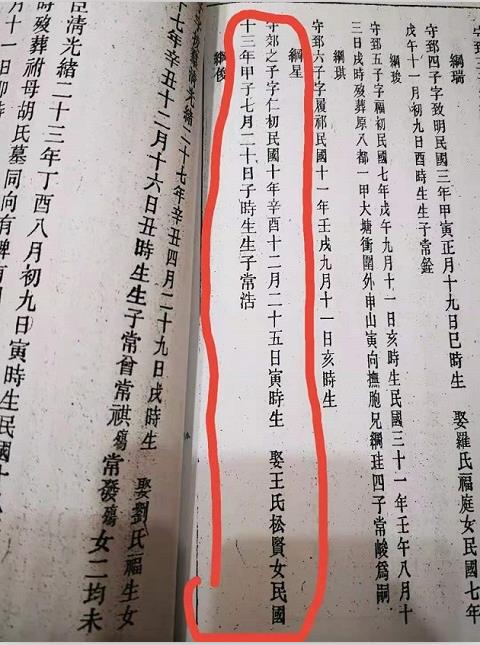 綱瑞
守郅四子字致明民國三年甲寅正月十九日巳時生 娶羅氏福庭女民國七年
戊午十一月初九日酉時生生子常銓
綱
守郅五子字福初民國七年戊午九月十一日亥時生民國三十一年壬午八月十
三日戌時歿葬原八都一甲大塘衝圍外申山寅向撫胞兄綱珪四子常峻為嗣
綱琪
守郅六子字履祁民國十一年壬戌九月十一日亥時生
綱星
守郊之子字仁初民國十年辛酉十二月二十五日寅時生 娶王氏松賢女民國
十三年甲子七月二十日子時生生子常浩
綱俊
清光緒二十七年辛丑四月二十九日戌時生 娶劉氏福生女
十七年辛丑十二月十六日丑時生生子常曾常祺殤常發殤女二均未
臣清光緒二十三年丁酉八月初九日寅時生民國十
時歿葬祔母胡氏墓同向有碑
月十一日